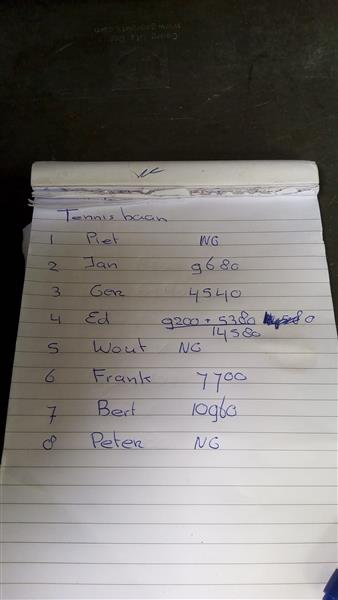 Tennis baan
1 Piet NG
2 Jan 9680
3 Ger 4540
4 Ed 9200 + 5380
14580
5 Wout NG
6 Frank 7700
7 Bert 10960
8 Peter NG